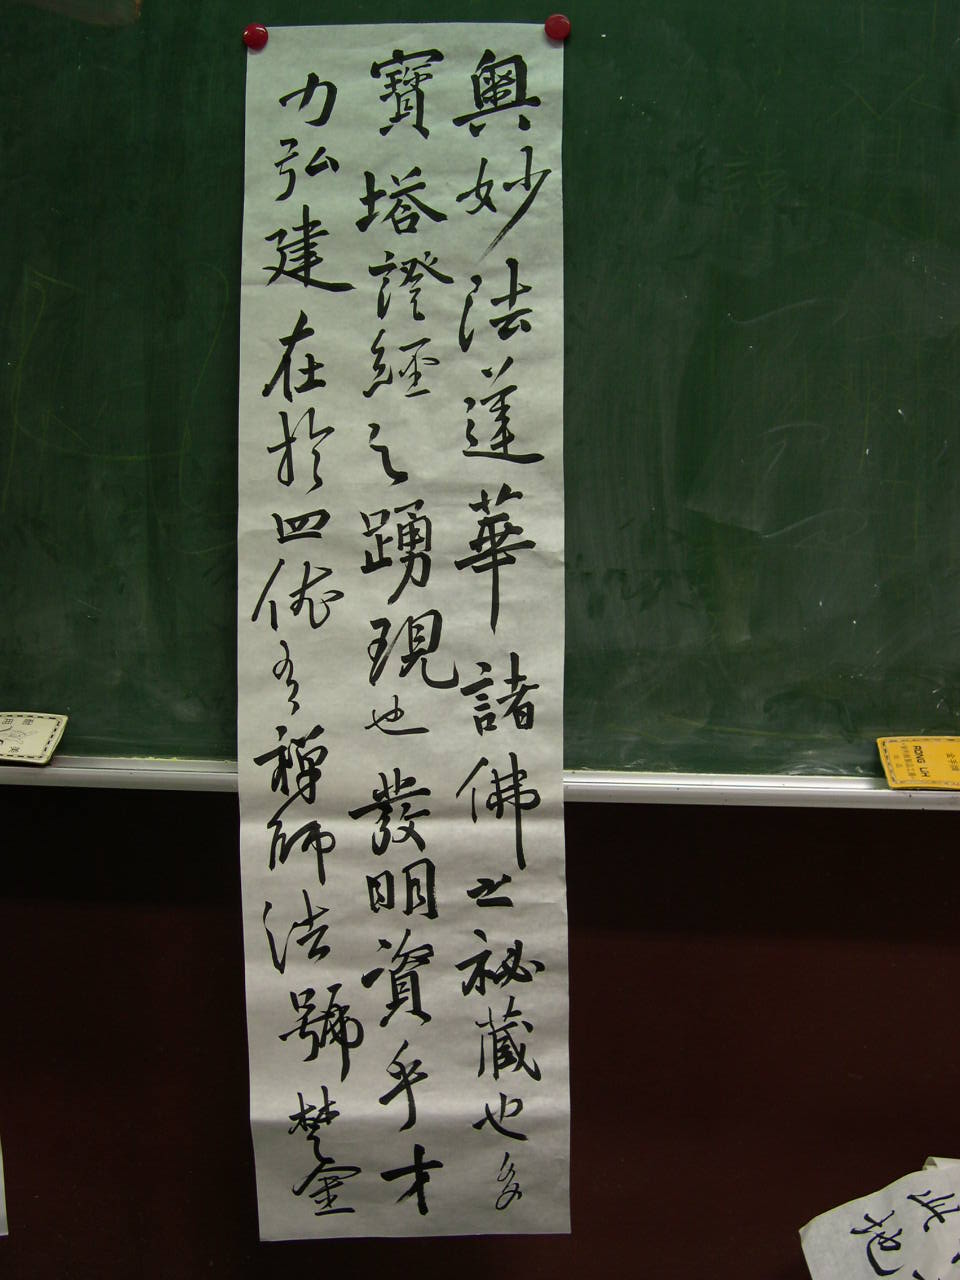 奧妙法蓮華諸佛之祕藏也多
寶塔證經之踴現也發明資乎才
力弘建在於四依有禪師法號楚金
RONG LIH